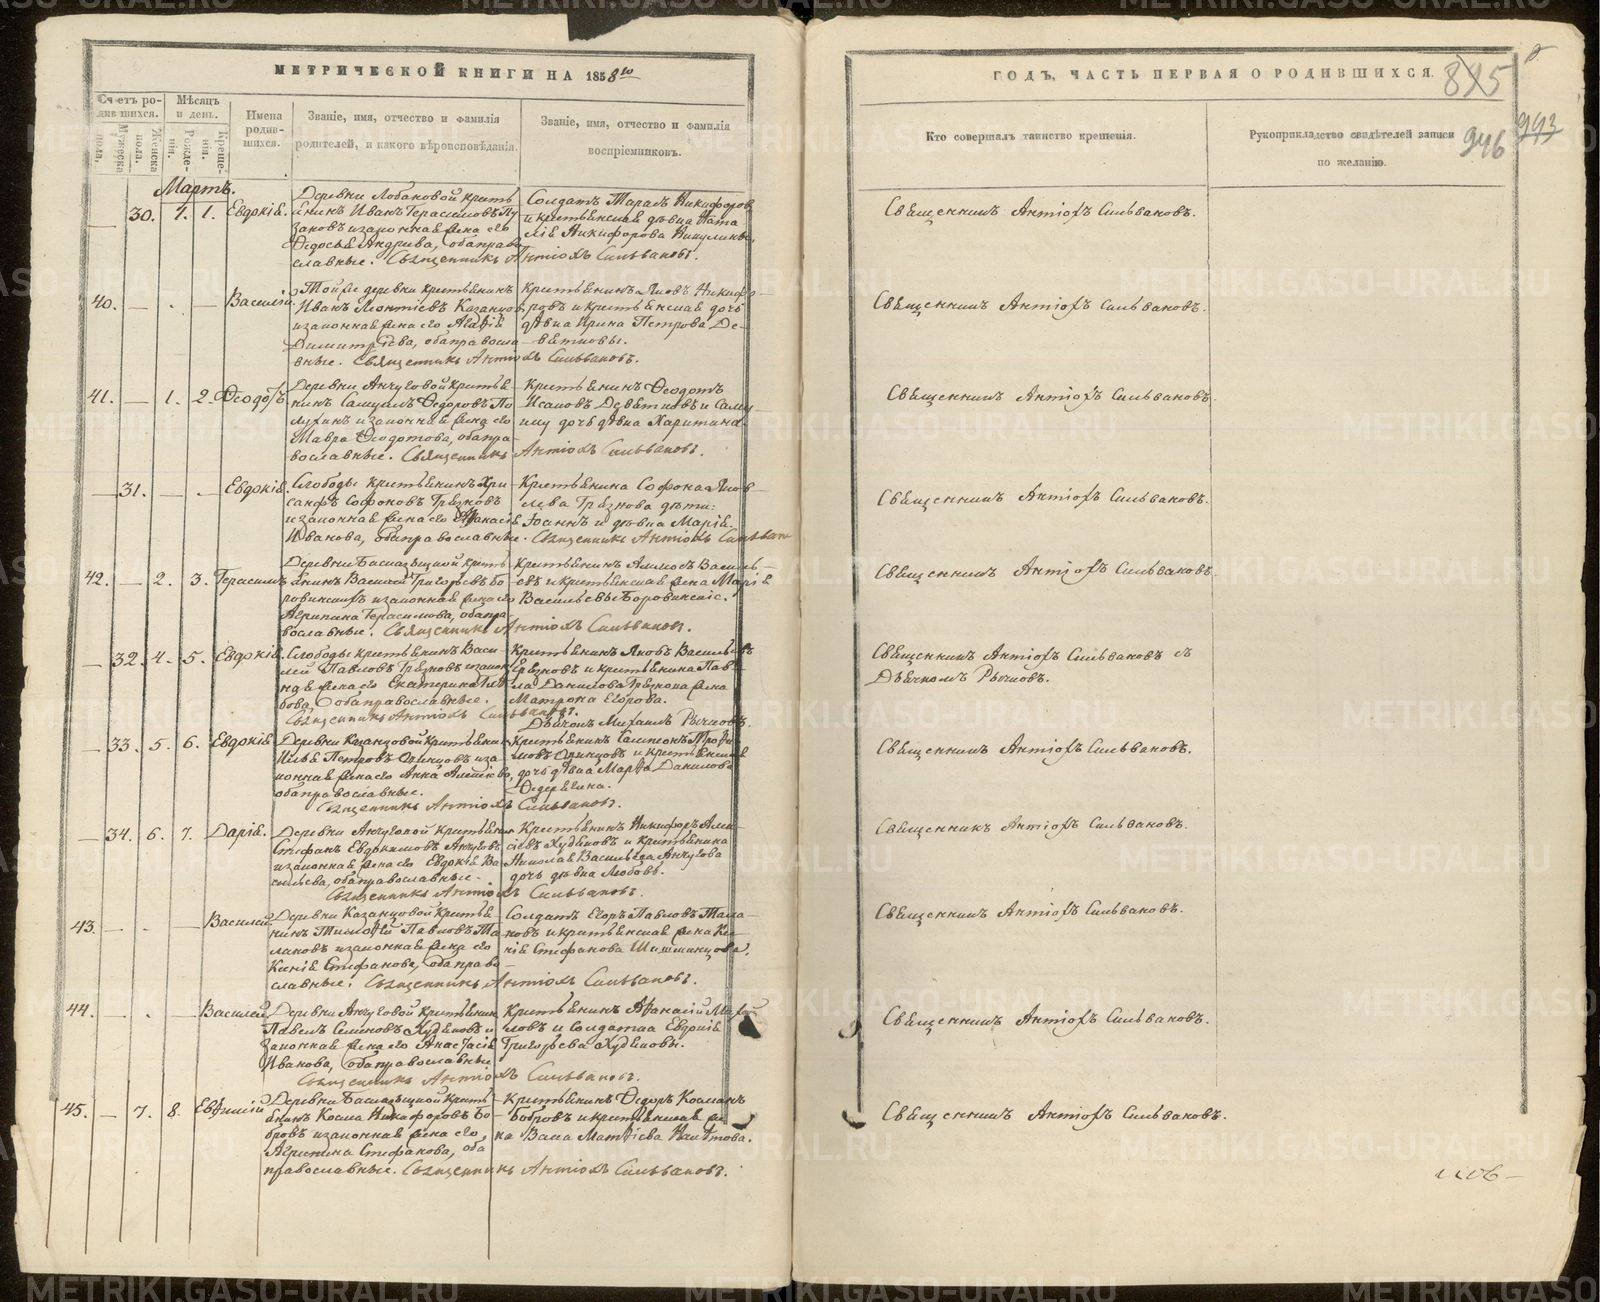 МЕТРИЧЕСКОЙ КНИГИ НА 1858 го
ГОДЪ, ЧАСТЬ ПЕРВАЯ О РОДИВШИХСЯ.
895
946
993
Счетъ родившихся.
Мужеска пола.
Женска пола.
Мѣсяцъ и день.
Рожденія.
Крещенія.
Имена родившихся.
Званіе, имя, отчество и фамилія
родителей, и какого вѣроисповѣданія.
Званіе, имя, отчество и фамилія
воспріемниковъ.
Кто совершалъ таинство крещенія.
Рукоприкладство свидѣтелей записи
по желанію.
Мартъ.
30. 1. 1. Евдокія.
Деревни Лобановой кресть
янинъ Иванъ Герасимовъ Пу
заковъ и законная жена его
Ѳедосья Андріева, оба право
славные. Священникъ Антіохъ Сильвановъ.
Солдатъ Тарасъ Никифоров
и крестьянская дѣвка Ната
лія Никифорова Никулины.
Священникъ Антіохъ Сильвановъ.
40. — . — Василій.
Той же деревни крестьянинъ
Иванъ Леонтіевъ Казанцов
и законная жена его Агафія
Димитріева, оба правосла
вные. Священникъ Антіохъ Сильвановъ.
Крестьянинъ Яковъ Никифо
ровъ и крестьянская дочь
дѣвка Ирина Петрова Де
вятковы.
Священникъ Антіохъ Сильвановъ.
41. — 1. 2. Ѳеодотъ
Деревни Анчуговой крестья
нинъ Самуилъ Ѳедоровъ По
лухинъ и законная жена его
Мавра Ѳеодотова, оба пра
вославные. Священникъ Антіохъ Сильвановъ.
Крестьянинъ Ѳеодотъ
Исаковъ Девятковъ и
дочь дѣвка Харитина.
Священникъ Антіохъ Сильвановъ.
— 31. — . Евдокія.
Слободы крестьянинъ Хри
санфъ Софоновъ Грязновъ
и законная жена его Афанасія
Иванова, оба православные. Священникъ Антіохъ Сильван
Крестьянина Софона Яков
лева Грязнова дѣти:
Іоаннъ и дѣвка Марія.
Священникъ Антіохъ Сильвановъ.
42. — 2. 3. Герасимъ
Деревни Басказыцкой кресть
янинъ Василей Григорьевъ Бо
ровинскихъ и законная жена его
Агрипина Герасимова, оба пра
вославные. Священникъ Антіохъ Сильвановъ.
Крестьянинъ Василь
евъ и крестьянская жена Марія
Васильевы Боровинскіе.
Священникъ Антіохъ Сильвановъ.
— 32. 4. 5. Евдокія.
Слободы крестьянинъ Васи
лей Павловъ Грязновъ и закон
ная жена его Екатерина Глѣ
бова, оба православные.
Священникъ Антіохъ Сильвановъ.
Крестьянинъ Яковъ Васильевъ
Грязновъ и крестьянина Пав
ла Данилова Грязнова жена
Матрона Егорова.
Дьячокъ Михаилъ Рычковъ.
Священникъ Антіохъ Сильвановъ съ
Дьячкомъ Рычковъ.
— 33. 5. 6. Евдокія
Деревни Казанцовой крестьянин
Илья Петровъ Одинцовъ и за
конная жена его Анна Алексіева,
оба православные.
Священникъ Антіохъ Сильвановъ.
Крестьянинъ Трофи
мовъ Одинцовъ и крестьянская
дочь дѣвка Марфа Данилова
Священникъ Антіохъ Сильвановъ.
— 34. 6. 7. Дарія.
Деревни Анчуговой крестьянин
Стефанъ Евдокимовъ Анчуговъ
и законная жена его Евдокія Ва
сильева, оба православные.
Священникъ Антіохъ Сильвановъ.
Крестьянинъ Никифоръ Алек
сіевъ Худяковъ и крестьянина
Николая Васильева Анчугова
дочь дѣвка Любовь.
Священникъ Антіохъ Сильвановъ.
43. — . — Василей
Деревни Казанцовой крестья
нинъ Тимофей Павловъ Та
лановъ и законная жена его
Ксенія Стефанова, оба право
славные. Священникъ Антіохъ Сильвановъ.
Солдатъ Егоръ Павловъ Тала
новъ и крестьянская жена Ксе
нія Стефанова Шишминцова.
Священникъ Антіохъ Сильвановъ.
44. — . — Василей
Деревни Анчуговой крестьянин
Павелъ Семеновъ Худяковъ и
законная жена его Анастасія
Иванова, оба православные
Священникъ Антіохъ Сильвановъ.
Крестьянинъ Афанасій
и солдатка Евдокія
Григорьева Худяковы.
Священникъ Антіохъ Сильвановъ.
45. — 7. 8. Евфимій
Деревни Басказыцкой кресть
янинъ Косма Никифоровъ Бо
бровъ и законная жена его,
Агрипина Стефанова, оба
православные. Священникъ Антіохъ Сильвановъ.
Крестьянинъ Ѳедоръ Косминъ
Бобровъ и крестьянская же
на Васа Матфіева
Священникъ Антіохъ Сильвановъ.
METRIKI.GASO-URAL.RU